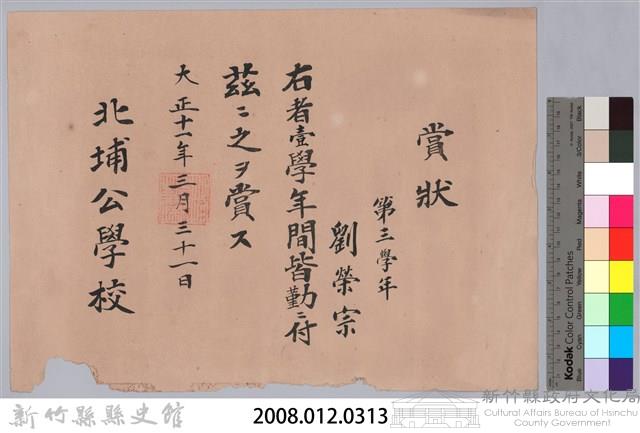 賞狀
第三學年
劉榮宗
右者壹學年間皆勤ニ付
茲ニ之ヲ賞ス
大正十一年三月三十一日
北埔公學校
Kodak Color Control Patches
Blue
Cyan
Green
Yellow
Red
Magenta
White
3/Color
Black
新竹縣縣史館
2008.012.0313
新竹縣政府文化局
Cultural Affairs Bureau of Hsinchu
County Government